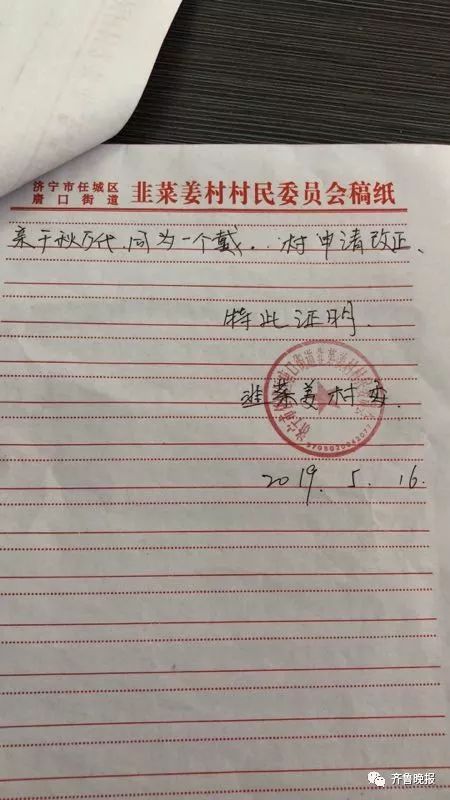 济宁市任城区
唐口街道
韭菜姜村村民委员会稿纸
亲千秋万代,同为一个戴。村申请改正、
特此证明.
韭菜姜村委.
2019. 5. 16.
3708020042077
齐鲁晚报